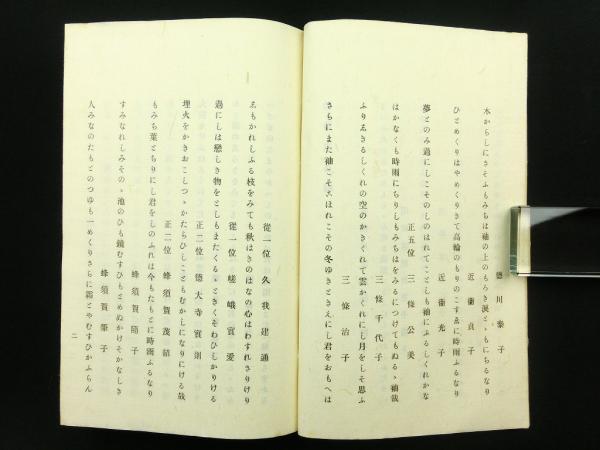 徳川泰子
木からしにさそふもみちは袖の上のもろき涙とゝもにちるなり
近衞貞子
ひとめくりはやめくりきて高輪のもりのこすゑに時雨ふるなり
近衞光子
夢とのみ過にしこそのしのはれてことしも袖にふるしくれかな
正五位 三條公美
はかなくも時雨にちりしもみちはをみるにつけてもぬるゝ袖哉
三條千代子
ふりゐきるしくれの空のかきくれて雲かくれにし月をしそ思ふ
三條治子
さらにまた袖こそしほれこその冬ゆきときえにし君をおもへは
從一位 久我建通
ゑもかれしふる枝をみても秋はきのはなの心はわすれさりけり
從一位 嵯峨實愛
過にしは戀しき物をとしもまたくるゝときくそわひしかりける
正二位 德大寺實則
埋火をかきおこしつゝかたらひしこともむかしになりにける哉
正二位 蜂須賀茂韶
もみち葉とちりにし君をしのふれは今もたもとに時雨ふるなり
蜂須賀隨子
すみなれしみそのゝ池のひも鏡むすひもとめぬかけそかなしき
蜂須賀筆子
人みなのたもとのつゆも一めくりさらに霜とやむすひかふらん
二